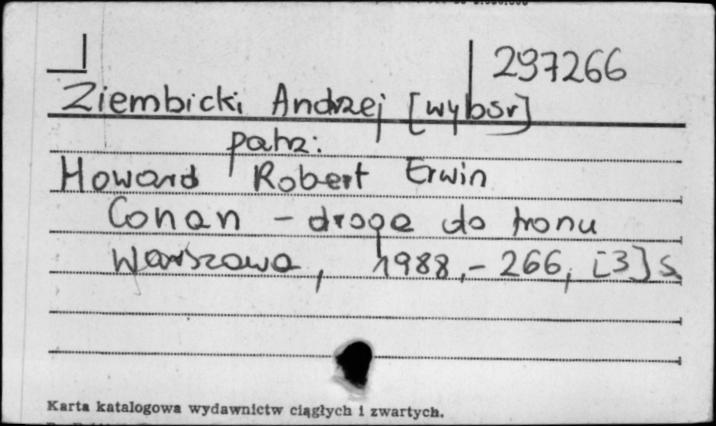 297266
Ziembicki Andrzej [wybór]
patrz:
Howard Robert Erwin
Conan - droga do tronu
Warszawa, 1988.- 266, [3] s.
Karta katalogowa wydawnictw ciągłych i zwartych.